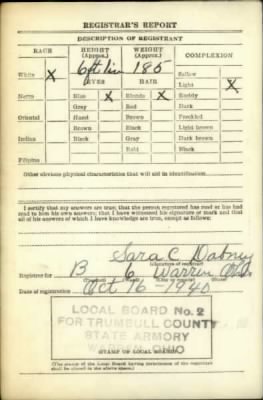 REGISTRAR'S REPORT
DESCRIPTION OF REGISTRANT
RACE HEIGHT (Approx.) WEIGHT (Approx.) COMPLEXION
6ft 185
White X EYES HAIR Sallow
Light X
Negro Blue X Blonde X Ruddy
Gray Red Dark
Oriental Hazel Brown Freckled
Brown Black Light brown
Indian Black Gray Dark brown
Bald Black
Filipino
Other obvious physical characteristic that will aid in identification
I certify that my answers are true; that the person registered has read or has had
read to him his own answers; that I have witnessed his signature or mark and that
all of his answers of which I have knowledge are true, except as follows:
Sara C Dabney
(Signature of registrar)
Registrar for B 6 Warren
(Precinct) (Ward) (City or county) (State)
Date of registration Oct 16-1940
LOCAL BOARD No. 2
FOR TRUMBULL COUNTY
STATE ARMORY
WARREN, OHIO
STAMP OF LOCAL BOARD
(The stamp of the Local Board having jurisdiction of the registrant
shall be placed in the above space.)